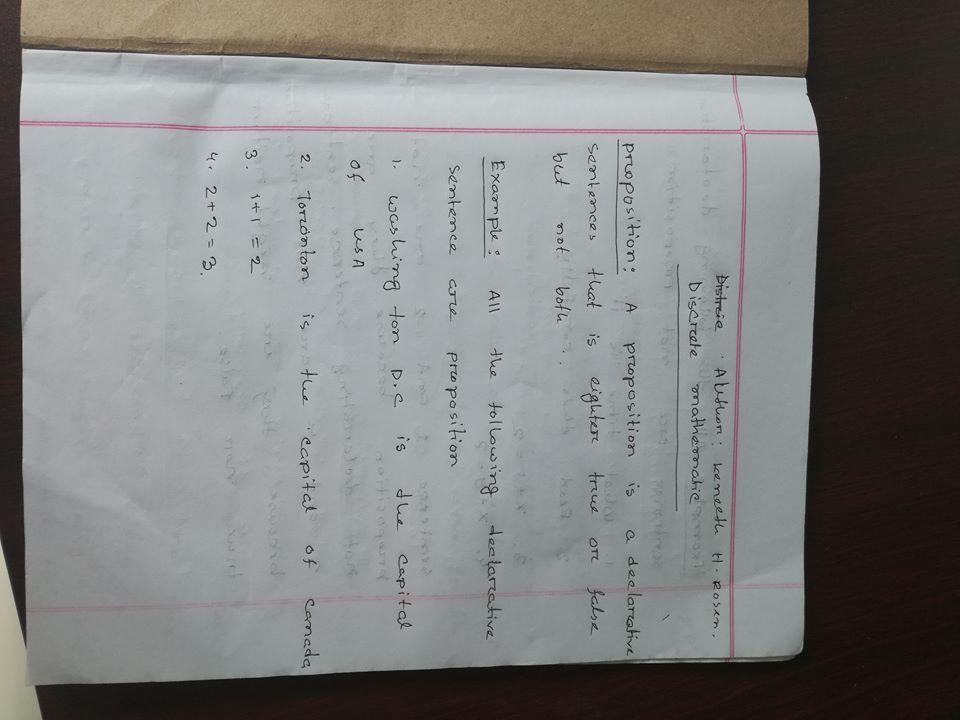 Distrcie Author: Keneeth H. Rosen.
Discrete mathematic
proposition: A proposition is a declarative
sentences that is eighter true or false
but not both ..
Example: All the following declarative
sentence are proposition
1. washing ton D.C is the capital
of USA
2. Toronton is the capital of canada
3. 1+1 = 2
4. 2+2 = 3.